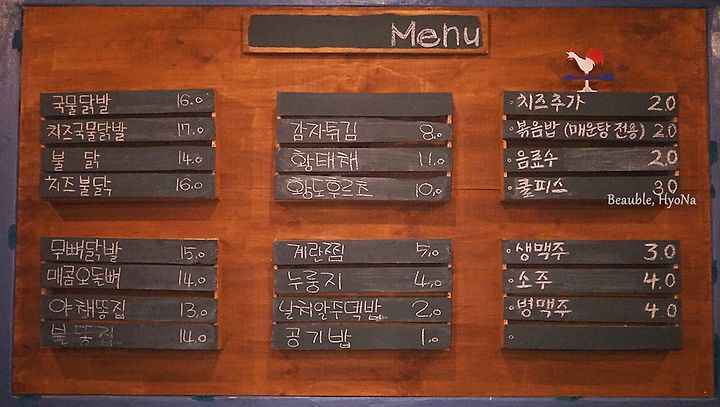 Menu
국물닭발 16.0
치즈국물닭발 17.0
불 닭 14.0
치즈불닭 16.0
감자튀김 8.0
황태채 11.0
황도후르츠 10.0
치즈추가 2.0
볶음밥 (매운탕 전용) 2.0
음료수 2.0
쿨피스 3.0
Beauble, HyoNa
무뼈닭발 15.0
매콤오돌뼈 14.0
야채똥집 13.0
불똥집 14.0
계란찜 5.0
누룽지 4.0
날치알주먹밥 2.0
공기밥 1.0
생맥주 3.0
소주 4.0
병맥주 4.0